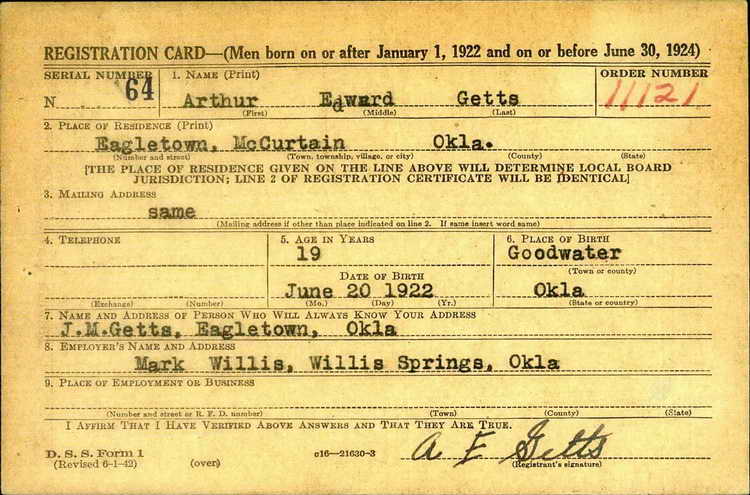 REGISTRATION CARD—(Men born on or after January 1, 1922 and on or before June 30, 1924)
SERIAL NUMBER 1. NAME (Print) ORDER NUMBER
N 64 Arthur Edward Getts 11121
(First) (Middle) (Last)
2. PLACE OF RESIDENCE (Print)
Eagletown, McCurtain Okla.
(Number and street) (Town, township, village, or city) (County) (State)
[THE PLACE OF RESIDENCE GIVEN ON THE LINE ABOVE WILL DETERMINE LOCAL BOARD
JURISDICTION; LINE 2 OF REGISTRATION CERTIFICATE WILL BE IDENTICAL]
3. MAILING ADDRESS
same
(Mailing address if other than place indicated on line 2. If same insert word same)
4. TELEPHONE 5. AGE IN YEARS 6. PLACE OF BIRTH
19 Goodwater
(Town or county)
DATE OF BIRTH
June 20 1922 Okla
(Exchange) (Number) (Mo.) (Day) (Yr.) (State or country)
7. NAME AND ADDRESS OF PERSON WHO WILL ALWAYS KNOW YOUR ADDRESS
J.M.Getts, Eagletown, Okla
8. EMPLOYER'S NAME AND ADDRESS
Mark Willis, Willis Springs, Okla
9. PLACE OF EMPLOYMENT OR BUSINESS
(Number and street or R. F. D. number) (Town) (County) (State)
I AFFIRM THAT I HAVE VERIFIED ABOVE ANSWERS AND THAT THEY ARE TRUE.
D. S. S. Form 1 A E Getts
(Revised 6-1-42) (over) c16—21630-3 (Registrant's signature)